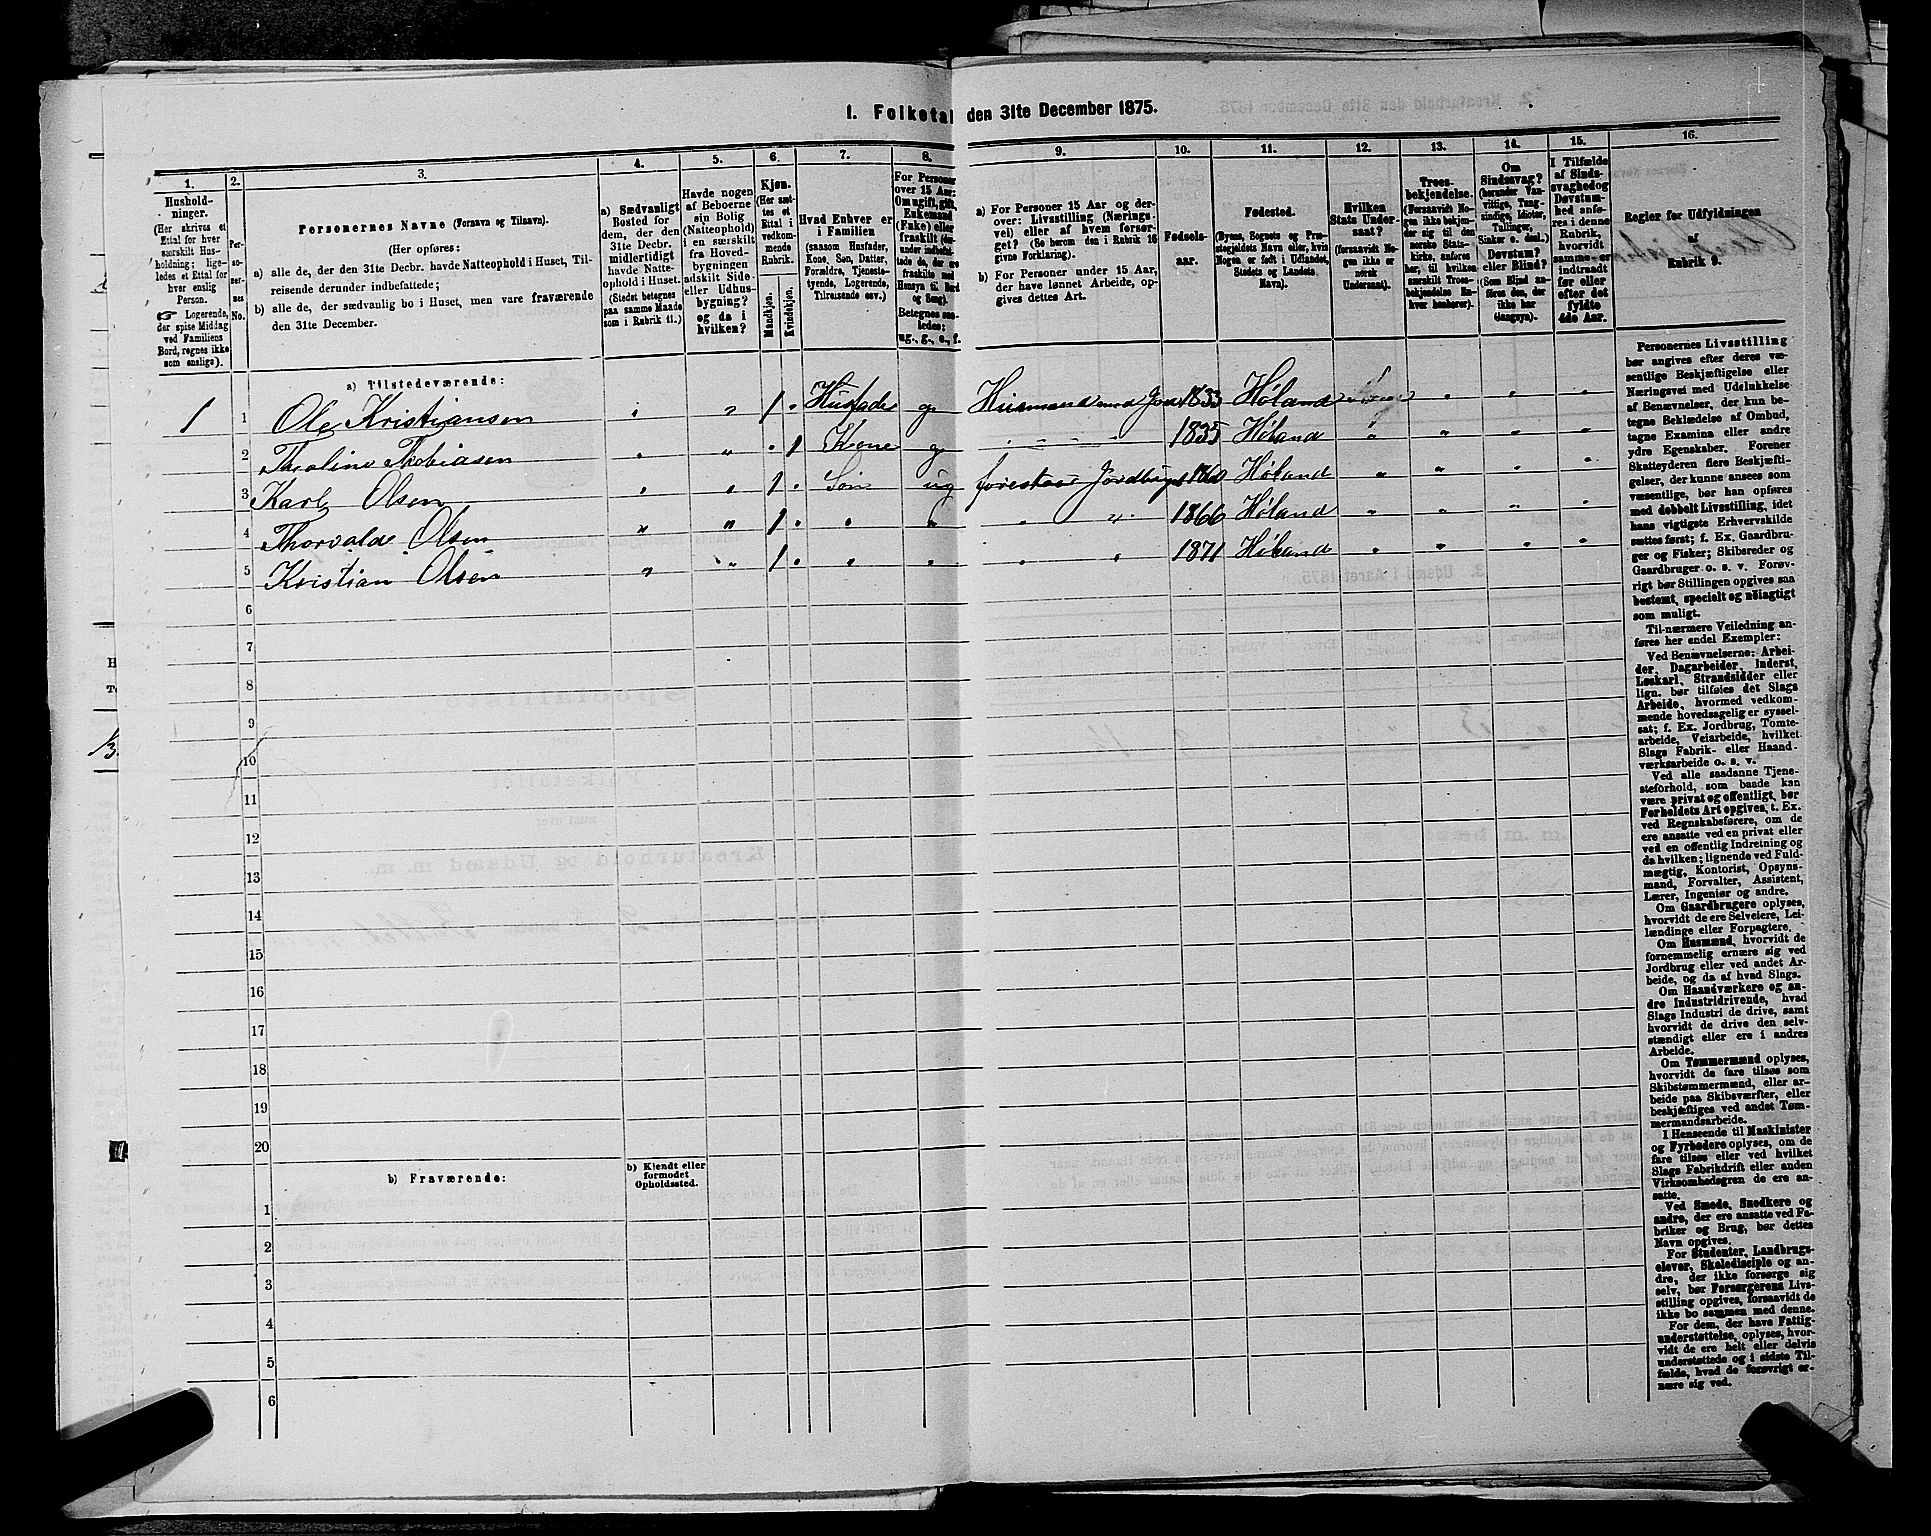 1. Folketal den 31te December 1875.
1.
Hushold-
ninger.
(Her skrives et
Ettal for hver
særskilt Hus-
holdning; lige-
ledes et Ettal for
hver enslig
Person.
☞ Logerende,
der spise Middag
ved Familiens
Bord, regnes ikke
som enslige).
2.
Per-
so-
ner-
nes
No.
3.
Personernes Navne (Fornavn og Tilnavn).
(Her opføres:
a) alle de, der den 31te Decbr. havde Natteophold i Huset, Til-
reisende derunder indbefattede;
b) alle de, der sædvanlig bo i Huset, men vare fraværende
den 31te December.
4.
a) Sædvanligt
Bosted for
dem, der den
31te Decbr.
midlertidigt
havde Natte-
ophold i Huset.
(Stedet betegnes
paa samme Maade
som i Rubrik 11.)
5.
Havde nogen
af Beboerne
sin Bolig
(Natteophold)
i en særskilt
fra Hoved-
bygningen
adskilt Side-
eller Udhus-
bygning?
og da i
hvilken?
6.
Kjøn.
(Her sæt-
tes et
Ettal i
vedkom-
mende
Rubrik.
Mandkjøn.
Kvindekjøn.
7.
Hvad Enhver er
i Familien
(saasom Husfader,
Kone, Søn, Datter,
Forældre, Tjeneste-
tyende, Logerende,
Tilreisende osv.)
8.
For Personer
over 15 Aar:
Om ugift, gift,
Enkemand
(Enke) eller
fraskilt
Betegnes saa-
ledes:
ug., g., e., f.
9.
a) For Personer 15 Aar og der-
over: Livsstilling (Nærings-
vei) eller af hvem forsør-
get? (Se herom den i Rubrik 16
givne Forklaring).
b) For Personer under 15 Aar,
der have lønnet Arbeide, op-
gives dettes Art.
10.
Fødsels-
aar.
11.
Fødested.
(Byens, Sognets og Præ-
stegjeldets Navn eller, hvis
Nogen er født i Udlandet,
Stedets og Landets
Navn).
12.
Hvilken
Stats Under-
saat?
(forsaavidt No-
gen ikke er
norsk
Undersaat).
13.
Troes-
bekjendelse.
(Forsaavidt No-
gen ikke bekjen-
der sig til den
norske Stats-
kirke, anføres
her, til hvilken
særskilt Troes-
bekjendelse En-
hver henhører).
14.
Om
Sindssvag?
(herunder Van-
vittige, Tung-
sindige, Idioter,
Tullinger,
Sinker o. desl.)
Døvstum?
eller Blind?
(Som Blind an-
føres den, der
ikke har
Gangsyn).
15.
I Tilfælde
af Sinds-
svaghed og
Døvstum-
hed anfø-
res i denne
Rubrik,
hvorvidt
samme er
indtraadt
før eller
efter det
fyldte
4de Aar.
16.
Regler for Udfyldningen
af
Rubrik 9.
a) Tilstedeværende:
1 1 Ole Kristiansen „ „ 1 „ Husfader g Husmand med Jord 1833 Høland
2 Theoline Thobiasen „ „ „ 1 Kone g „ 1835 Høland „ „ „ „
3 Karl Olsen „ „ 1 „ Søn ug Jordbrug 1860 Høland „ „ „ „
4 Thorvald Olsen „ „ 1 „ „ „ „ „ 1866 Høland „ „ „ „
5 Kristian Olsen „ „ 1 „ „ „ „ „ 1871 Høland „ „ „ „
6
7
8
9
10
11
12
13
14
15
16
17
18
19
20
b) Fraværende:
b) Kjendt eller
formodet
Opholdssted.
1
2
3
4
5
6
Personernes Livsstilling
bør angives efter deres væ-
sentlige Beskjæftigelse eller
Næringsvei med Udelukkelse
af Benævnelser, der kun be-
tegne Beklædelse af Ombud,
tagne Examina eller andre
ydre Egenskaber. Forener
Skatteyderen flere Beskjæfti-
gelser, der kunne ansees som
væsentlige, bør han opføres
med dobbelt Livsstilling, idet
hans vigtigste Erhvervskilde
sættes først; f. Ex. Gaardbru-
ger og Fisker; Skibsreder og
Gaardbruger o. s. v. Forøv-
rigt bør Stillingen opgives saa
bestemt, specielt og nøiagtigt
som muligt.
Til nærmere Veiledning an-
føres her endel Exempler:
Ved Benævnelserne: Arbei-
der, Dagarbeider, Inderst,
Løskarl, Strandsidder eller
lign. bør tilføies det Slags
Arbeide, hvormed vedkom-
mende hovedsagelig er syssel-
sat; f. Ex. Jordbrug, Tomte-
arbeide, Veiarbeide, hvilket
Slags Fabrik- eller Haand-
værksarbeide o. s. v.
Ved alle saadanne Tjene-
steforhold, som baade kan
være privat og offentligt, bør
Forholdets Art opgives, t. Ex.
ved Regnskabsførere, om de
ere ansatte ved en privat eller
ved en offentlig Indretning og
da hvilken; lignende ved Fuld-
mægtig, Kontorist, Opsyns-
mand, Forvalter, Assistent,
Lærer, Ingeniør og andre.
Om Gaardbrugere oplyses,
hvorvidt de ere Selveiere, Lei-
lændinge eller Forpagtere.
Om Husmænd, hvorvidt de
fornemmelig ernære sig ved
Jordbrug eller ved andet Ar-
beide, og da af hvad Slags.
Om Haandværkere og an-
dre Industridrivende, hvad
Slags Industri de drive, samt
hvorvidt de drive den selv-
stændigt eller ere i andres
Arbeide.
Om Tømmermænd oplyses,
hvorvidt de fare tilsøs som
Skibstømmermænd, eller ar-
beide paa Skibsværfter, eller
beskjæftiges ved andet Tøm-
mermandsarbeide.
I Henseende til Maskinister
og Fyrbødere oplyses, om de
fare tilsøs eller ved hvilket
Slags Fabrikdrift eller anden
Virksomhedsgren de ere an-
satte.
Ved Smede, Snedkere og
andre, der ere ansatte ved Fa-
briker og Brug, bør dettes
Navn opgives.
For Studenter, Landbrugs-
elever, Skoledisciple og an-
dre, der ikke forsørge sig
selv, bør Forsørgerens Livs-
stilling opgives, forsaavidt de
ikke bo sammen med denne.
For dem, der have Fattig-
understøttelse, oplyses, hvor-
vidt de ere helt eller delvis
understøttede og i sidste Til-
fælde, hvad de forøvrigt er-
nære sig ved.